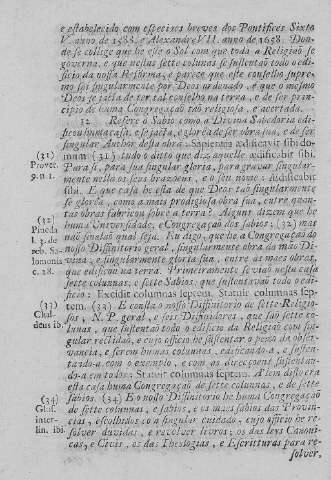 e estabelecido com especiaes breves dos Pontifices Sixto
V. anno de 1588. e Alexandre VII. anno de 1658. Don-
de se collige que he este o Sol com que toda a Religiaõ se
governa, e que nestas sette columnas se sustentaõ todo o edi-
ficio da nossa Reforma; e parece que este conselho supre-
mo foi singularmente por Deos ordenado, e que o mesmo
Deos se jacta de ter tal conselho na terra, e de ser prin-
cipio de huma Congregaçaõ taõ religiosa, e acertada.
12 Refere o Sabio como a Divina Sabedoria edi-
ficou huma casa, e se jacta, e gloréa de ser obra sua, e de ser
singular Author desta obra: Sapientia ædificavit sibi do-
(31) mum (31) tudo o ditto que diz aquelle ædificabit sibi.
Prover. Para si, para sua singular gloria, para gravar singular-
9. n 1. mente nella os seus brazoens, e o seu nome: ædificabit
sibi. E que casa he esta de que Deos taõ singularmente
se gloría, como a mais prodigiosa obra sua, entre quan-
tas obras fabricou sobre a terra? Alguns dizem que he
(32) huma Universidade, e Congregaçaõ dos sabios; (32) mas
Pineda naõ sinalaõ qual seja. Eu digo, que he a Congregaçaõ do
l. 3. de nosso Diffinitorio geral, singularmente obra da maõ Di-
reb. Sa- vina, e singularmente gloria sua, entre as maes obras,
lomonis que edificou na terra. Primeiramente se viaõ nesta casa
c. 28. sette columnas, e sette Sabios, que sustentavaõ todo o edi-
ficio: Excidit columnas septem. Statuit columnas sep-
(33) tem. (33) E consta o nosso Diffinitorio de sette Religio-
Chal- sos, N. P. geral, e seis Diffinidores, que saõ sette co-
deus ib. lunas, que sustentaõ todo o edificio da Religiaõ com sin-
gular rectidaõ, e cujo officio he sustentar o pezo da obser-
vancia, e serem humas columnas, edificando-a, e susten-
tando-a com o exemplo, e com as direcçoens sustentan-
do-a em todos: Statuit columnas septem.
esta casa huma Congregaçaõ de sette columnas, e de sette
(34) sabios. (34) E o nosso Diffinitorio he huma Congregaçaõ
Glos. de sette columnas, e sabios, e os mais sabios das Provin-
inter- cias, escolhidos com singular cuidado, cujo officio he re-
lin. ibi. solver duvidas, e revolver livros; os das leys Canoni-
cas, e Civis, os das Theologias, e Escrituras para re-
solver.